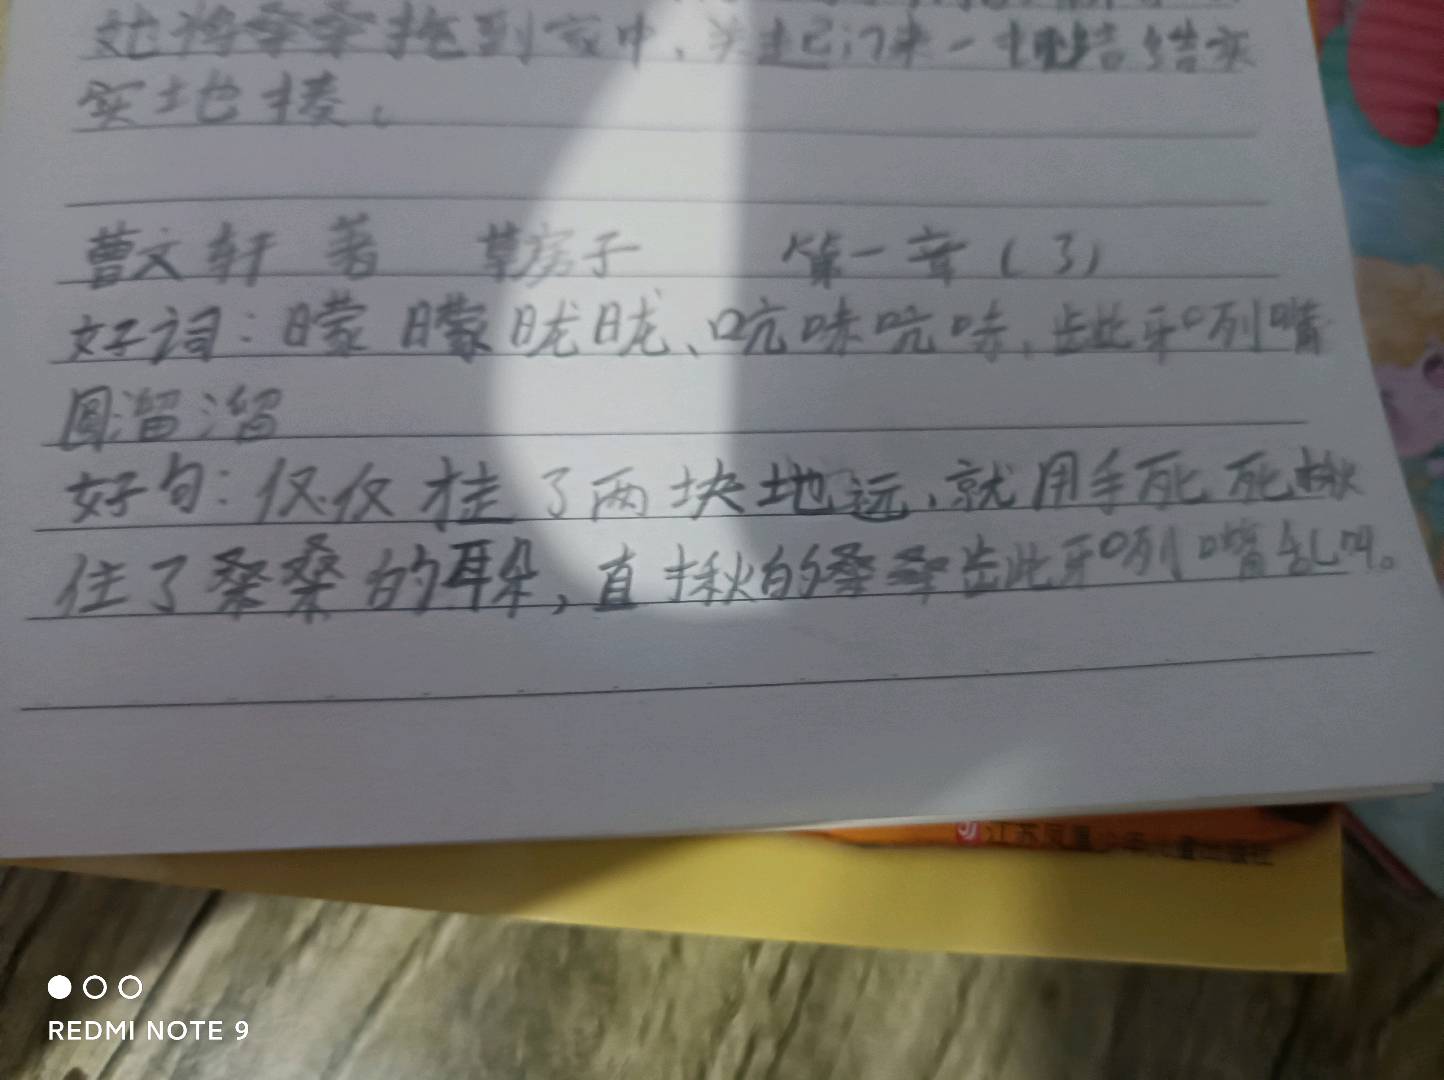 她将桑桑拖到家中,关起门来一把结结实
实地揍。
曹文轩 著 草房子 第一章(3)
好词:曚曚昽昽、吭哧吭哧、龇牙咧嘴
圆溜溜
好句:仅仅走了两块地远,就用手死死揪
住了桑桑的耳朵,直揪的桑桑龇牙咧嘴乱叫。
江苏凤凰少年儿童出版社
REDMI NOTE 9